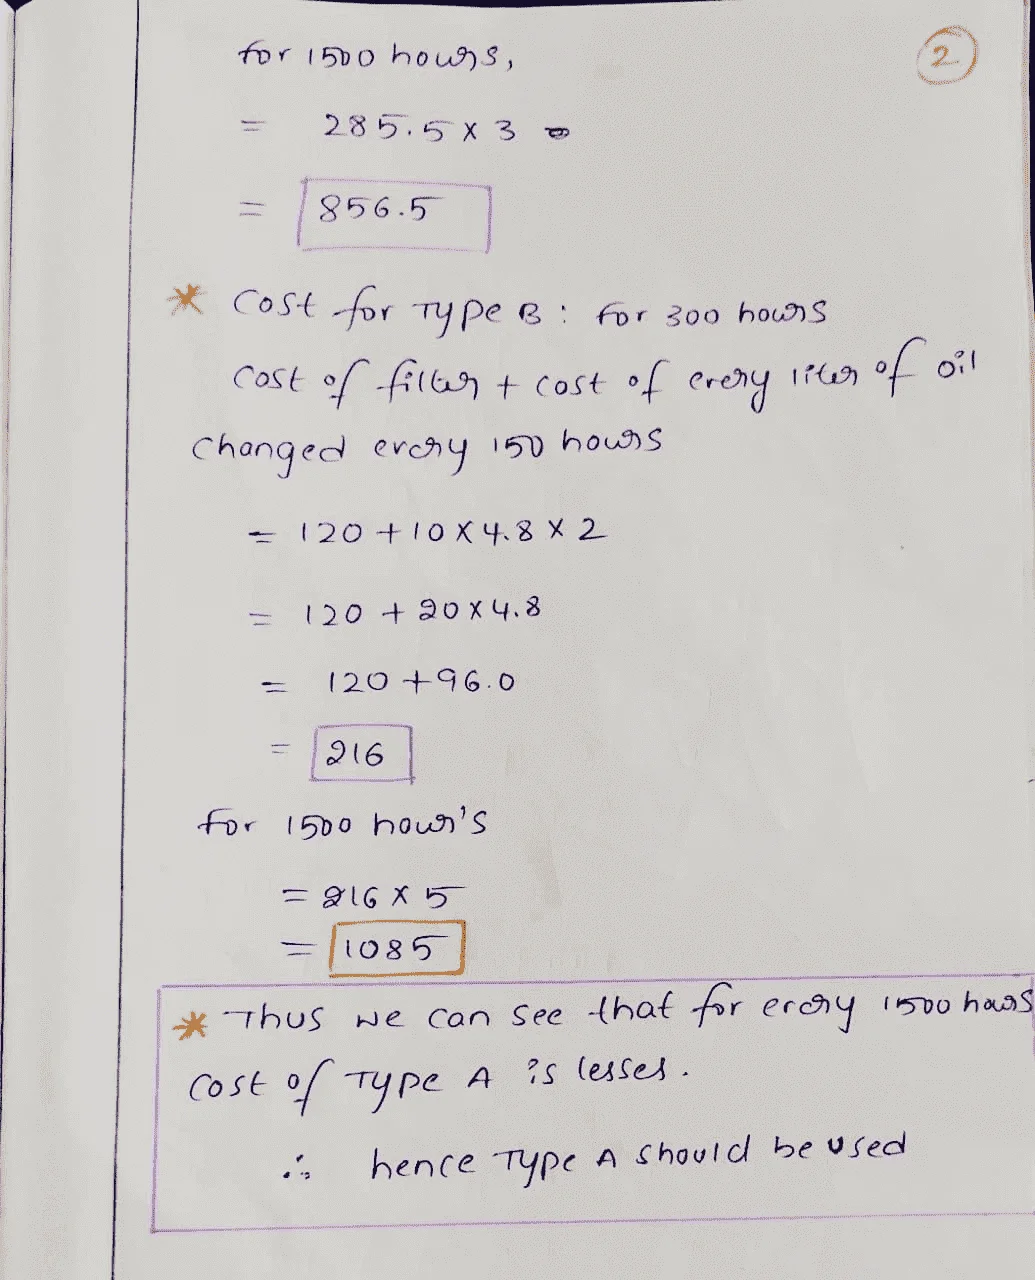 2
for 1500 hours,
= 285.5 x 3
= 856.5
* Cost for Type B: for 300 hours
Cost of filter + cost of every liter of oil
Changed every 150 hours
= 120 + 10 x 4.8 x 2
= 120 + 20 x 4.8
= 120 + 96.0
= 216
for 1500 hour's
= 216 x 5
= 1085
* Thus we can see that for every 1500 hours
Cost of Type A is lesses.
∴ hence Type A should be used